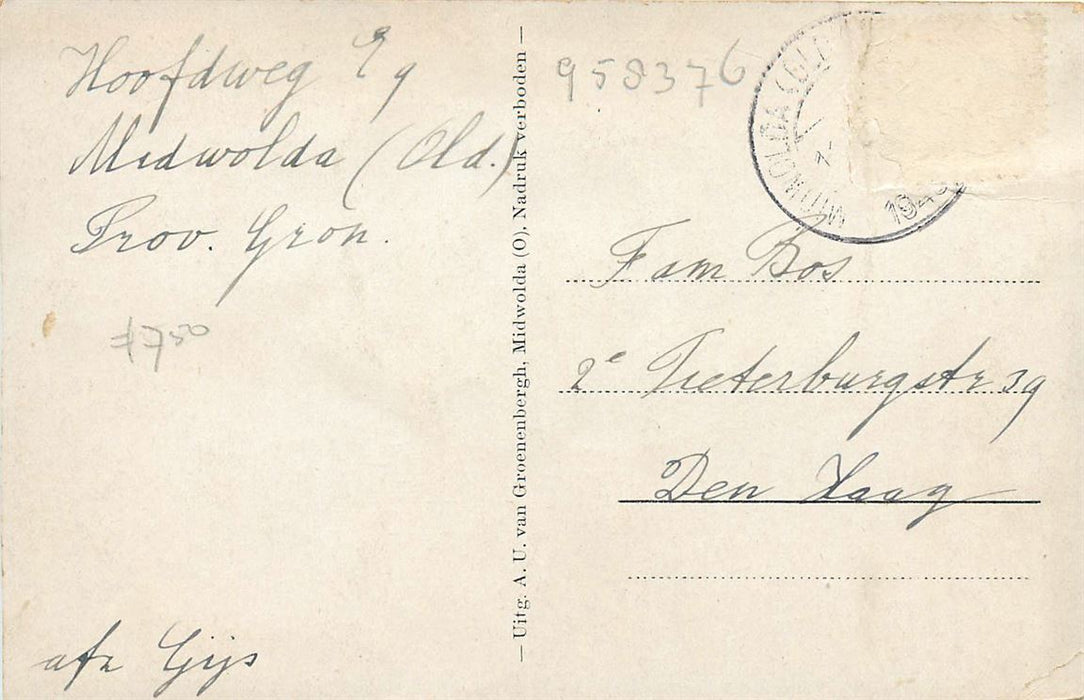 Hoofdweg E 9
Midwolda (Old.)
Prov. Gron.
f 7 50
afz Gijs
— Uitg. A. U. van Groenenbergh, Midwolda (O). Nadruk verboden —
958376
MIDWOLDA (OLD
Fam Bos
2e Tieterburgstr 39
Den Haag